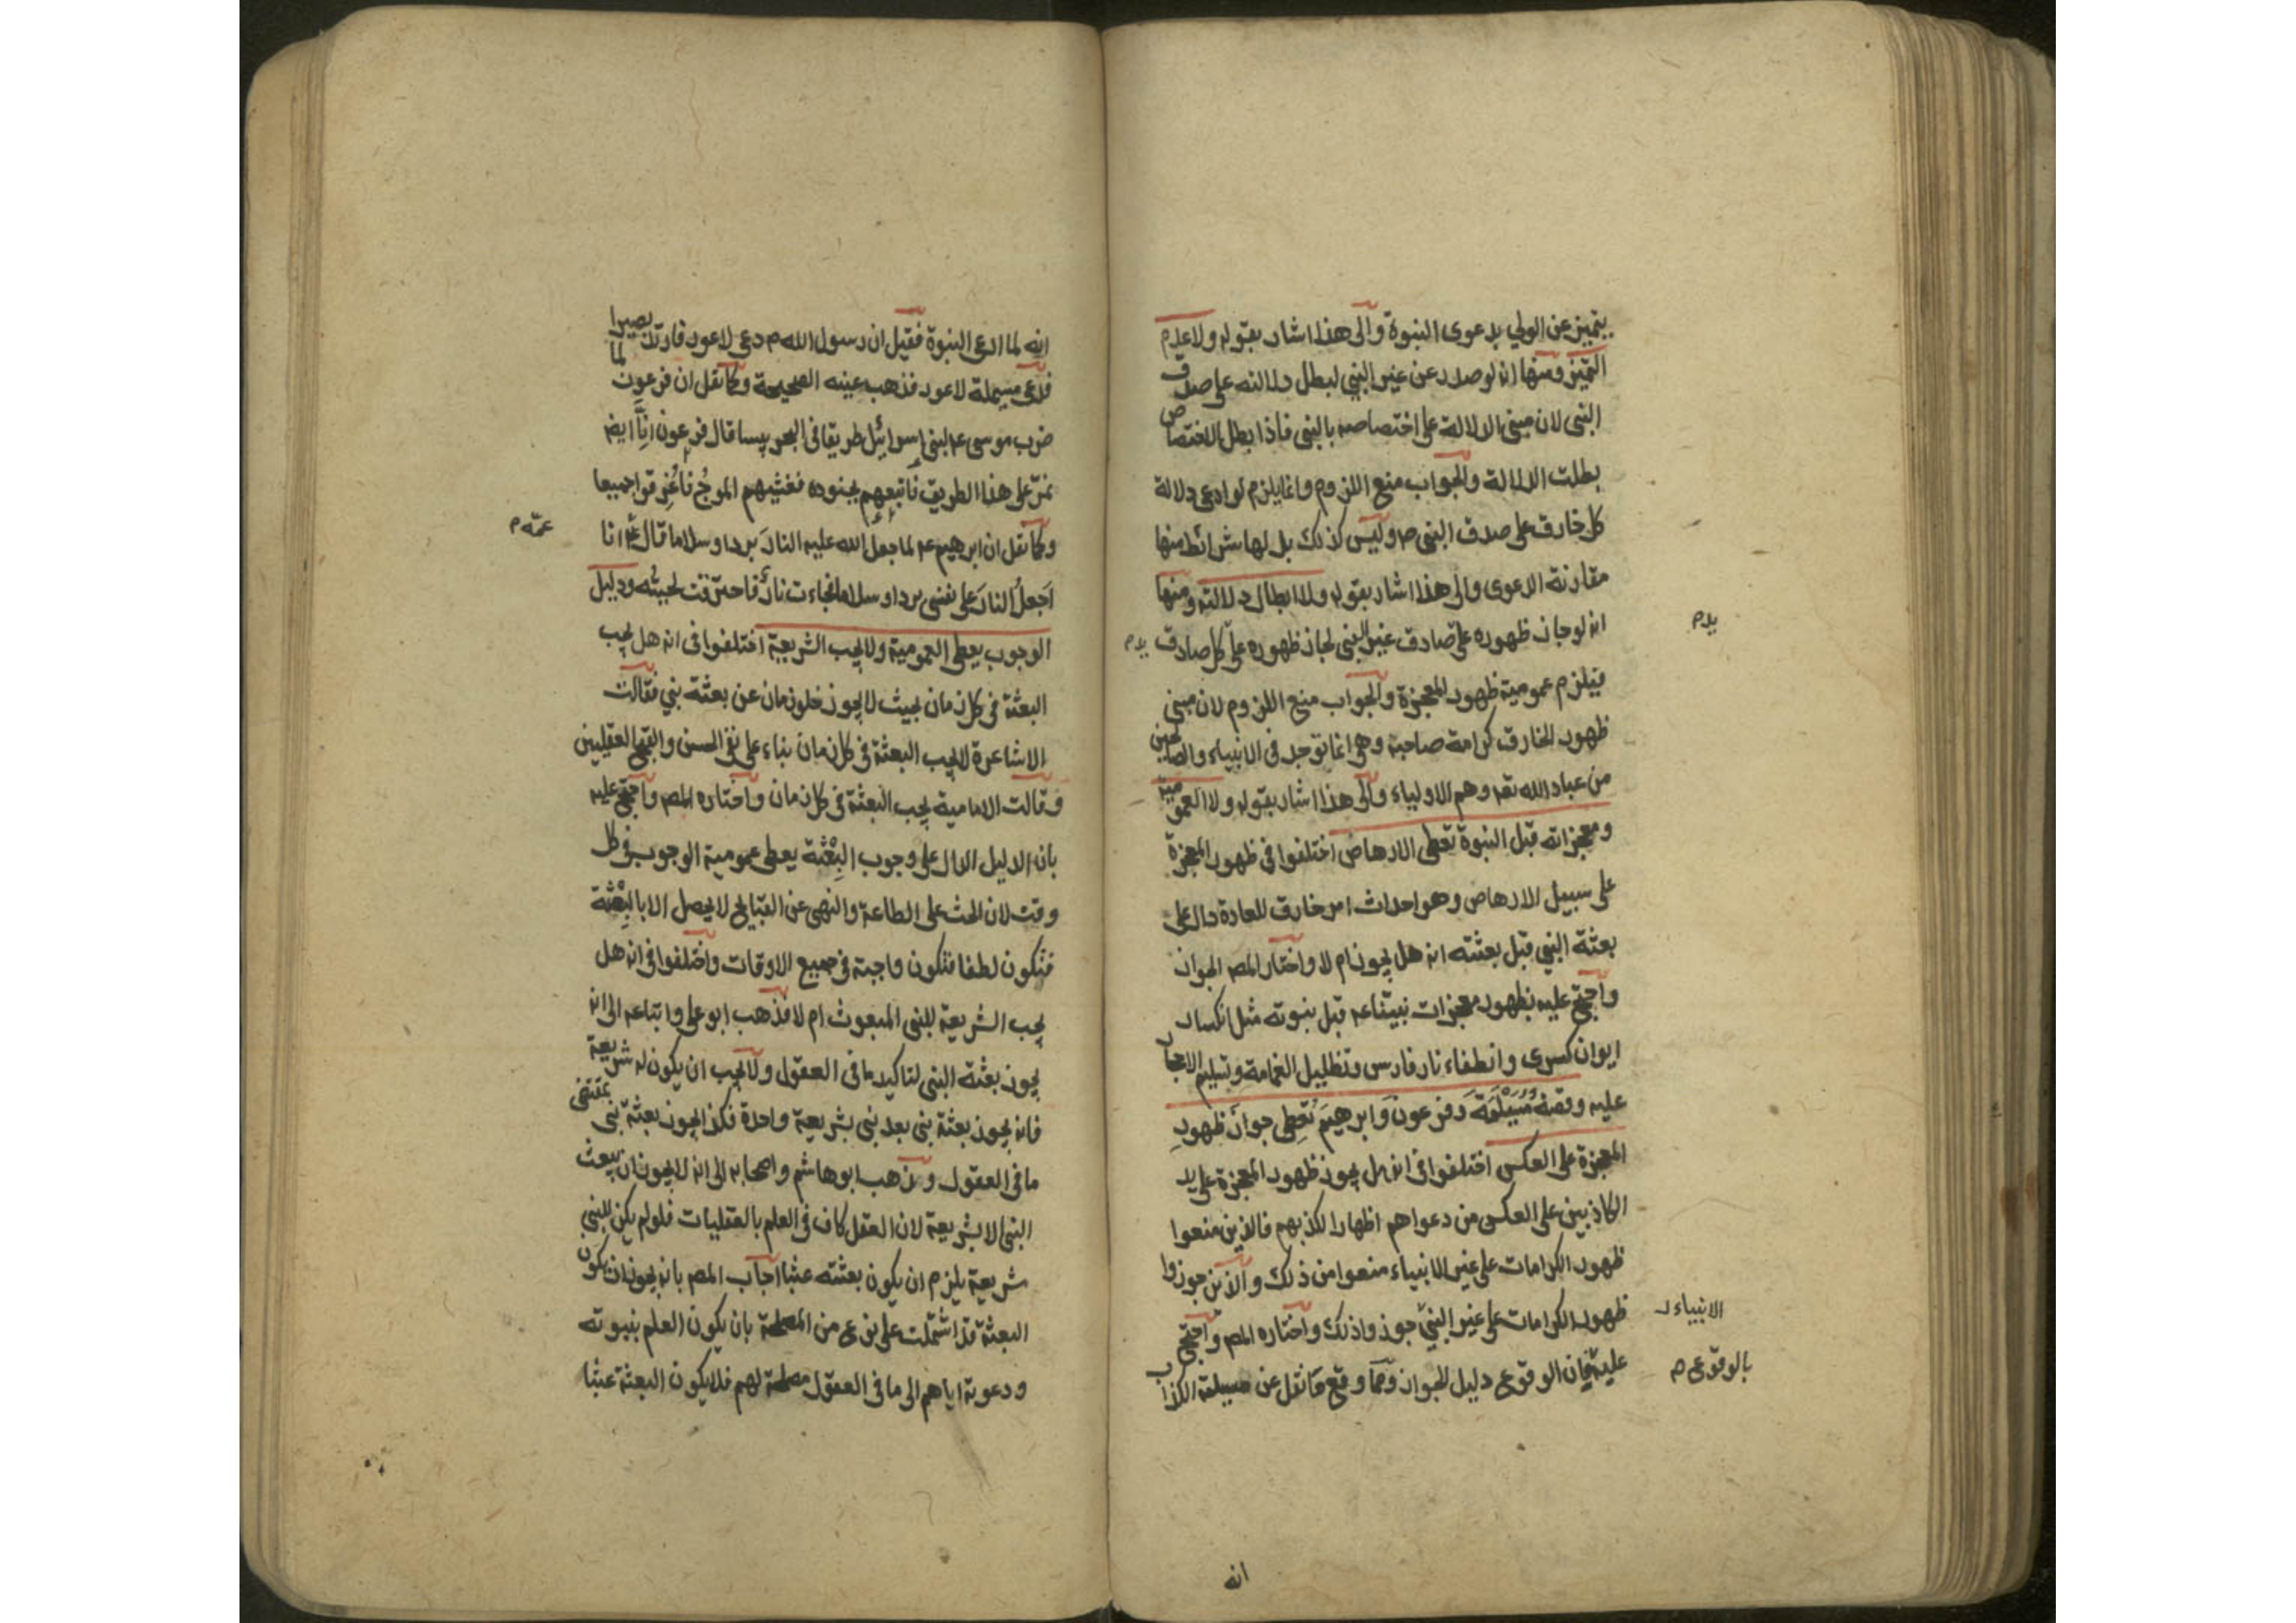 يتميز عن الولي بدعوى النبوة والى هذا اشار بقوله ولا عدم
التميز ومنها انه لو صدر عن غير النبي لبطل دلالته على صدق
النبي لان مبنى الدلالة على اختصاصه بالنبي فاذا بطل الاختصاص
بطلت الدلالة والجواب منع اللزوم وانما يلزم لو ادعى دلالة
كل خارق على صدق النبي ص وليس كذلك بل لها شرائط منها
مقارنة الدعوى والى هذا اشار بقوله ولا ابطال دلالته ومنها
انه لو جاز ظهوره على صادق غير النبي لجاز ظهوره على كل صادق
يدم
يدم
فيلزم عمومية ظهور المعجزة والجواب منع اللزوم لان مبنى
ظهور الخارق كرامة صاحبه وهي انما توجد في الانبياء والصالحين
من عباد الله تعه وهم الاولياء والى هذا اشار بقوله ولا العمومية
ومعجزاته قبل النبوة تعطى الارهاص اختلفوا في ظهور المعجزة
على سبيل الارهاص وهو احداث امر خارق للعادة دال على
بعثة النبي قبل بعثته انه هل يجوز ام لا واختار المصـ الجواز
واحتج عليه بظهور معجزات نبيناعم قبل نبوته مثل انكسار
ايوان كسرى وانطفاء نار فارس وتظليل الغمامة وتسليم الاحجار
عليه وقصة مُسَيْلَمَةَ وفرعونَ وابرهيمَ تُعطِى جوازَ ظهورِ
المعجزة على العكس اختلفوا في انه هل يجوز ظهور المعجزة على يد
الكاذبين على العكس من دعواهم اظهارا لكذبهم فالذين منعوا
ظهور الكرامات على غير الانبياء منعوا من ذلك والذين جوزوا
ظهور الكرامات على غير النبي جوزوا ذلك واختاره المصـ واحتج
الانبياء
عليه فان الوقوع دليل الجواز ومما وقع ما نقل عن مسيلمة الكذاب
بالوقوع ص
انه
انه لما ادعى النبوة فقيل ان رسول الله م دعى لاعور فارتد بصيرا
فدعى مسيملة لاعور فذهب عينه الصحيحة وكما نقل ان فرعون لما
ضرب موسى عم لبنى اسرائيل طريقا في البحر يبسا قال فرعون انّا ايضا
نمرّ على هذا الطريق فاتبعهم بجنوده فغشيهم الموجُ فاُغرِقوا جميعا
وكما نقل ان ابرهيم عم لما جعل الله عليه النارَ بردا وسلاما قال عمّه انا
عمّه م
اَجعلُ النارَ على نفسى بردا وسلاما فجاءت نارٌ فاحترقت لحيتُه ودليل
الوجوب يعطى العمومية ولا يجب الشريعة اختلفوا في انه هل يجب
البعثة في كل زمان بحيث لا يجوز خلو زمان عن بعثة نبي فقالت
الاشاعرة لا يجب البعثة في كل زمان بناء على نفى الحسن والقبح العقليين
وقالت الامامية يجب البعثة في كل زمان واختاره المصـ واحتج عليه
بان الدليل الدال على وجوب البِعْثة يعطى عمومية الوجوب في كل
وقت لان الحث على الطاعة والنهى عن القبايح لا يحصل الا بالبِعْثة
فتكون لطفا فتكون واجبة في جميع الاوقات واختلفوا في انه هل
يجب الشريعة للنبي المبعوث ام لا فذهب ابو على واتباعه الى انه
يجوز بعثة النبي لتاكيد ما في العقول ولا يجب ان يكون له شريعة
فانه يجوز بعثة نبي بعد نبي بشريعة واحدة فكذا يجوز بعثة نبى بمقتضى
ما في العقول وذهب ابو هاشم واصحابه الى انه لا يجوز ان يبعث
النبى الا بشريعة لان العقل كاف في العلم بالعقليات فلو لم يكن للنبي
شريعة يلزم ان يكون بعثته عبثا اجاب المصـ بانه يجوز ان يكون
البعثة قد اشتملت على نوع من المصلحة بان يكون العلم بنبوته
ودعوته اياهم الى ما في العقول مصلحة لهم فلا يكون البعثة عبثا